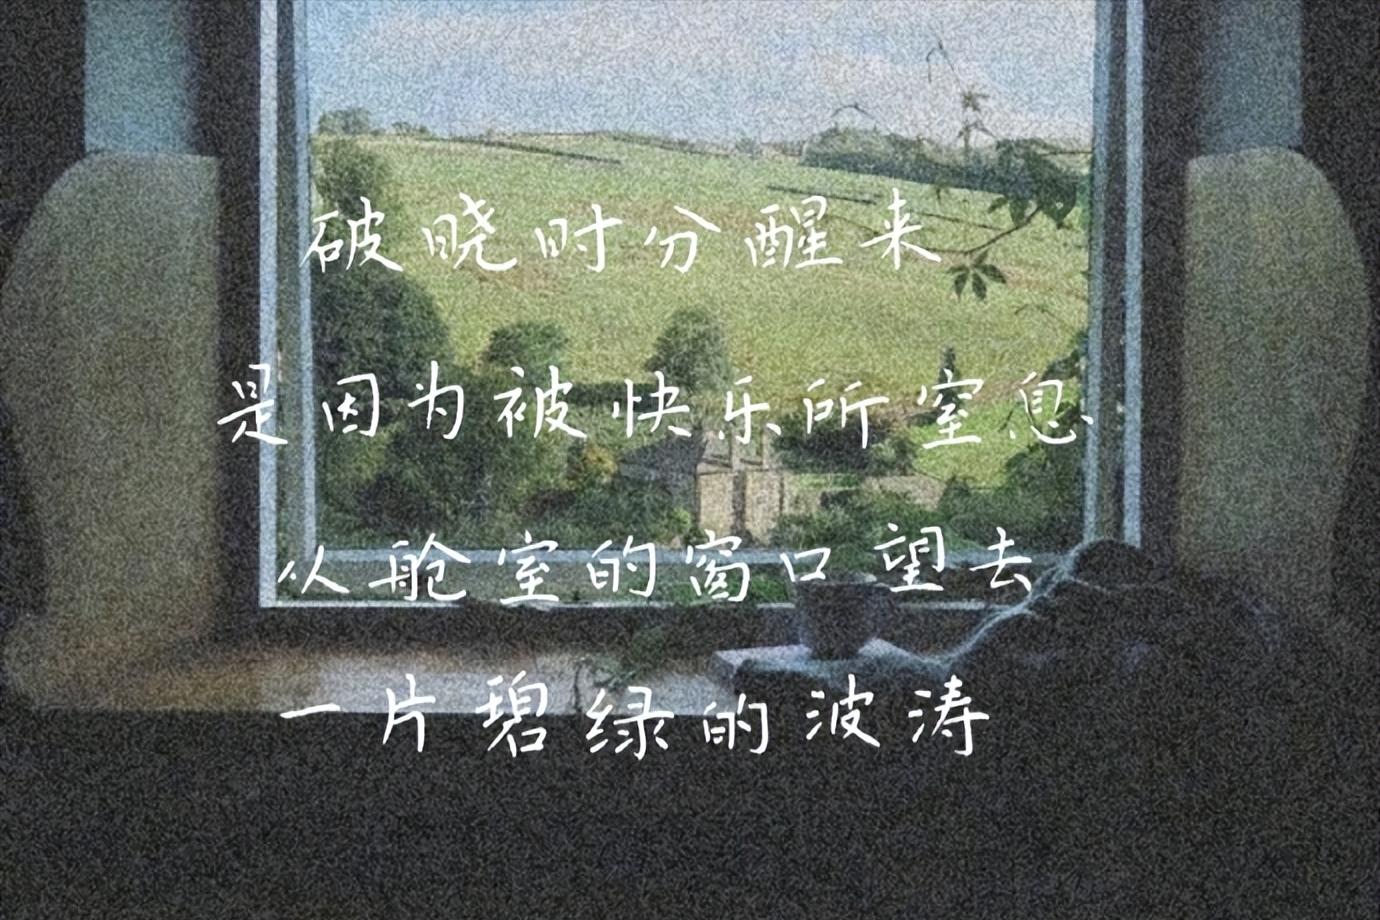 破晓时分醒来
是因为被快乐所窒息
从舱室的窗口望去
一片碧绿的波涛